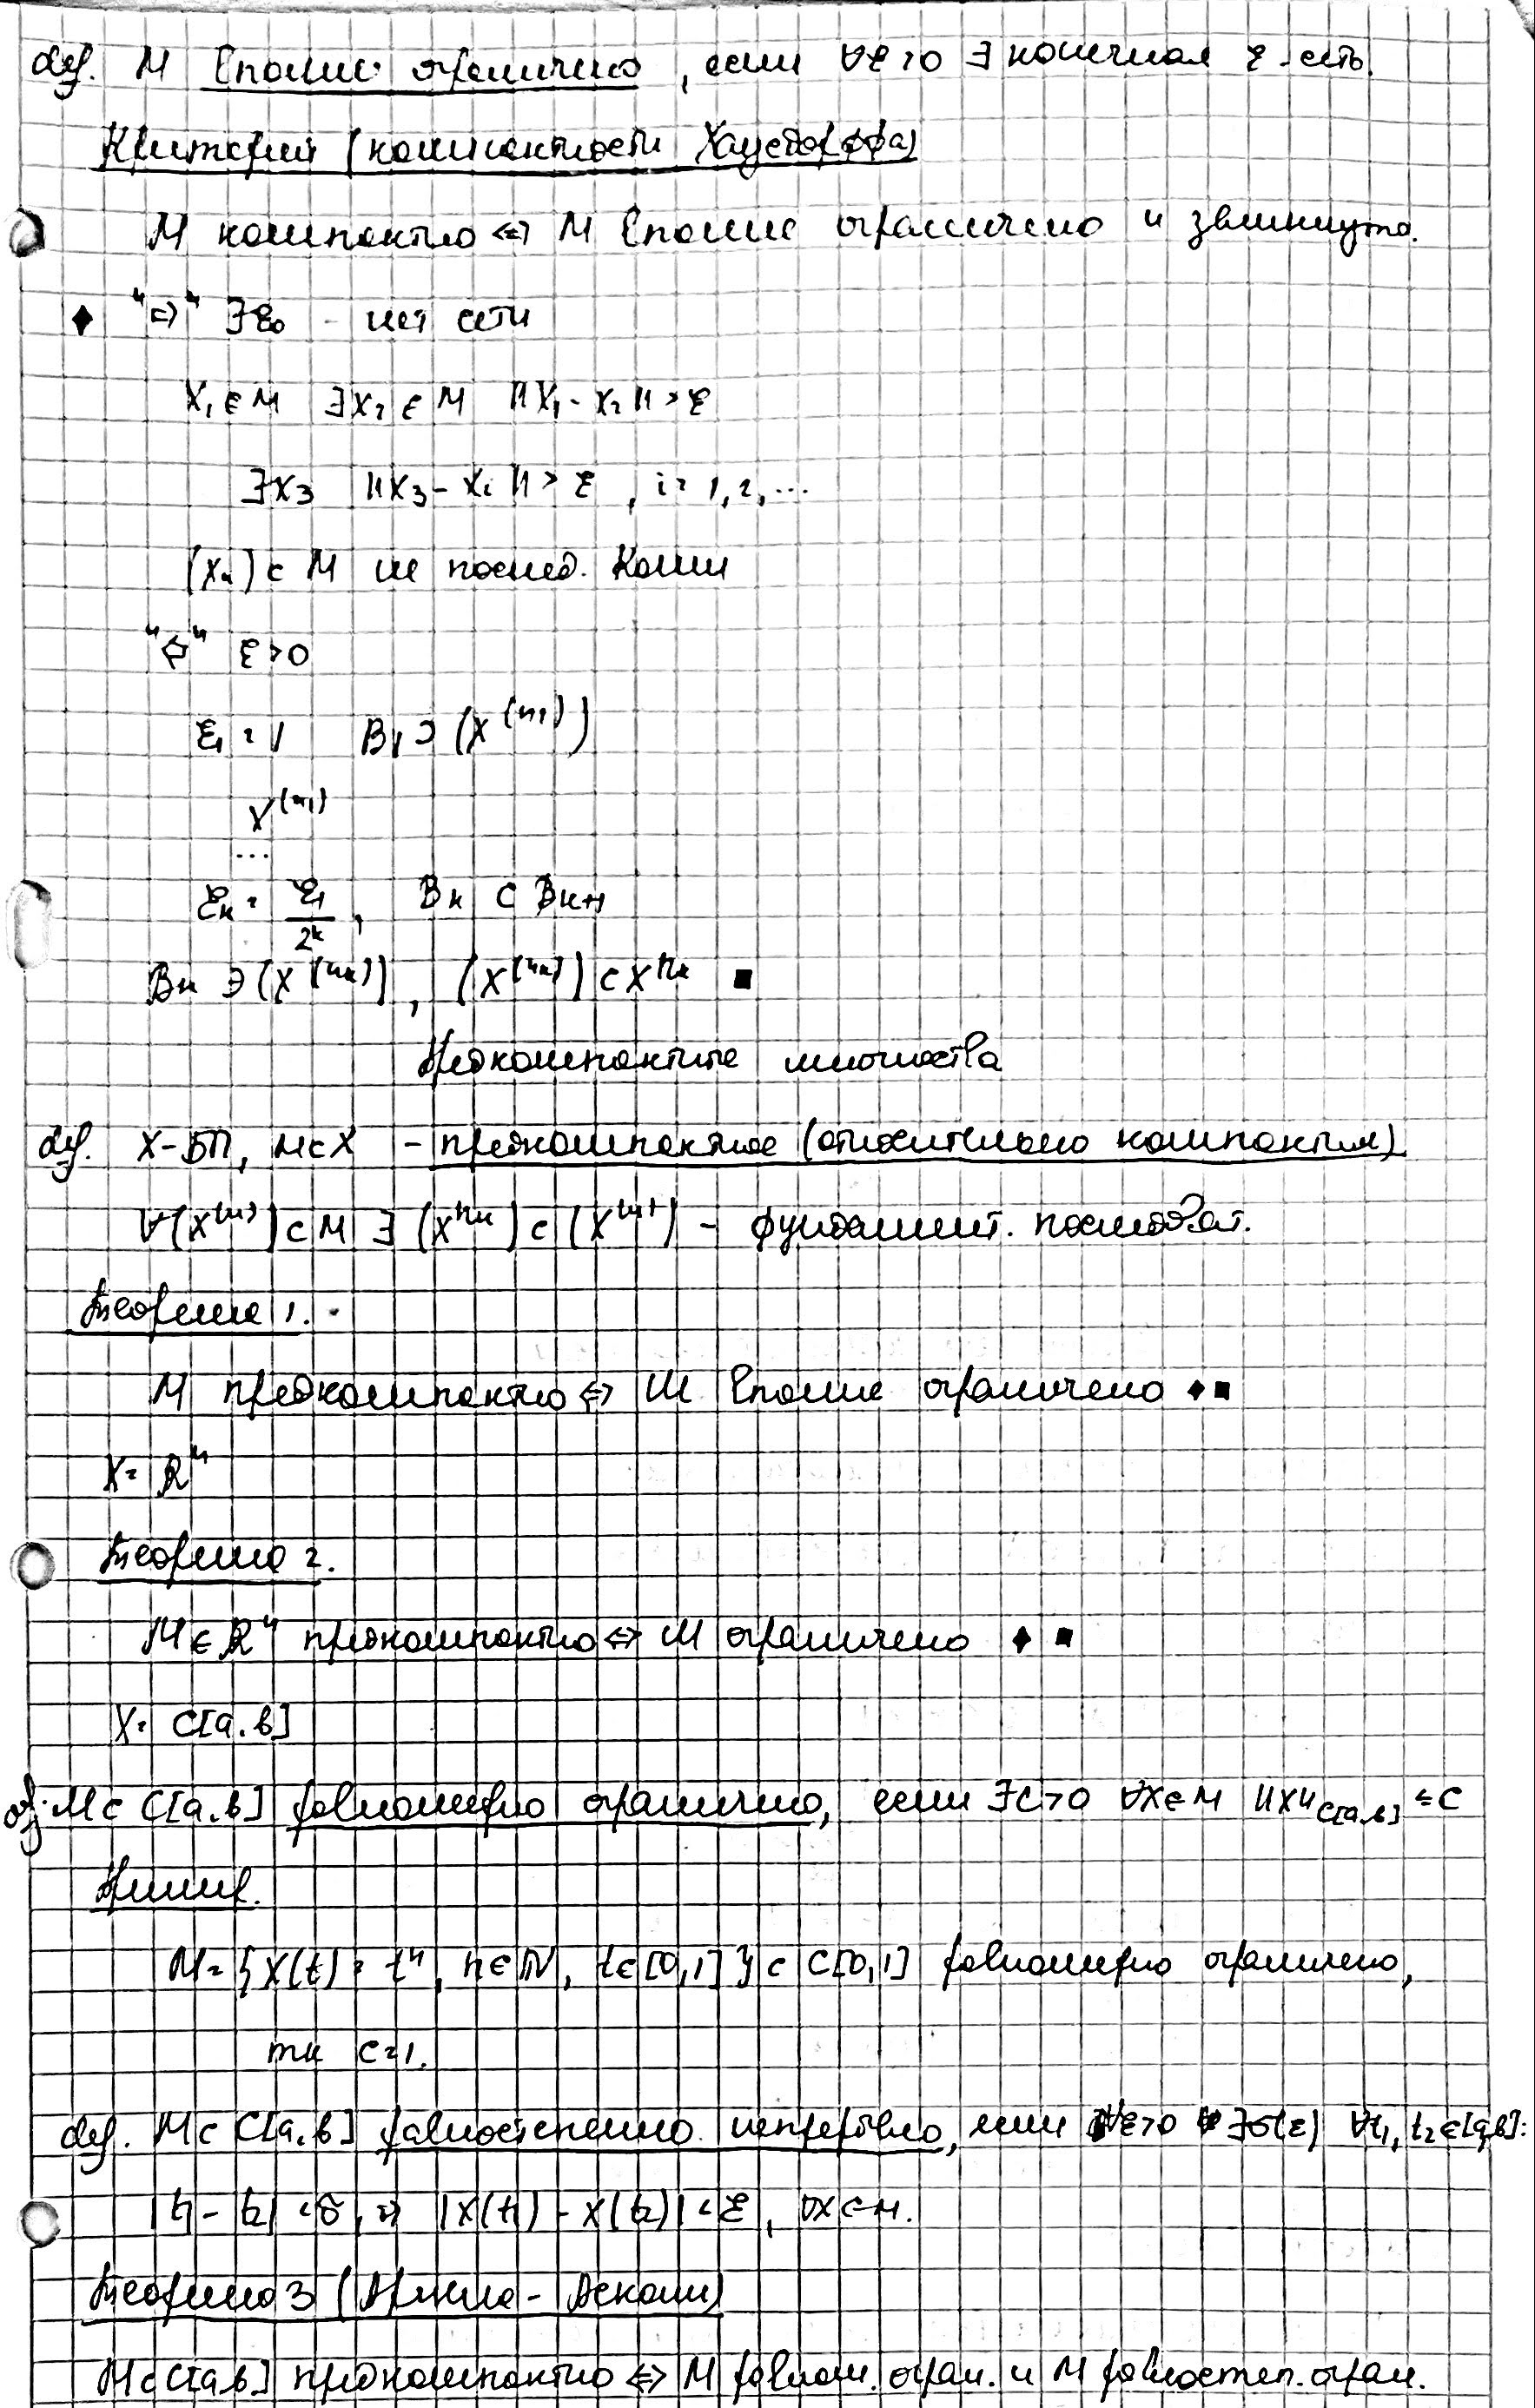 def. M вполне ограничено, если ∀ε>0 ∃ конечная ε-сеть.
Критерий (компактности Хаусдорффа)
M компактно ⇔ M вполне ограничено и замкнуто.
♦ "⇒" ∃ε₀ - нет сети
x₁ ∈ M ∃x₂ ∈ M ||x₁ - x₂|| > ε
∃x₃ ||x₃ - xᵢ|| > ε, i = 1, 2, ...
(xₙ) ⊂ M не послед. Коши
"⇐" ε>0
ε₁ = 1 B₁ ⊃ (x^(n₁))
x^(n₁)
...
εₖ = ε₁/2ᵏ, Bₖ ⊂ Bₖ₊₁
Bₖ ∋ (x^(nₖ)), (x^(nₖ)) ⊂ x^nₖ ■
Предкомпактные множества
def. X - БП, M ⊂ X - предкомпактное (относительно компактно)
∀(x^(n)) ⊂ M ∃ (x^nₖ) ⊂ (x^(n)) - фундамент. последоват.
Теорема 1.
M предкомпактно ⇔ M вполне ограничено ♦ ■
X = ℝⁿ
Теорема 2.
M ∈ ℝⁿ предкомпактно ⇔ M ограничено ♦ ■
X = C[a,b]
def. M ⊂ C[a,b] равномерно ограничено, если ∃C>0 ∀x∈M ||x||_C[a,b] ≤ C
Пример.
M = {x(t) = tⁿ, n∈ℕ, t∈[0,1]} ⊂ C[0,1] равномерно ограничено,
тк C=1.
def. M ⊂ C[a,b] равностепенно непрерывно, если ∀ε>0 ∃δ(ε) ∀t₁, t₂ ∈ [a,b]:
|t₁ - t₂| < δ, ⇒ |x(t₁) - x(t₂)| < ε, ∀x ∈ M.
Теорема 3 (Арцела - Асколи)
M ⊂ C[a,b] предкомпактно ⇔ M равном. огран. и M равностеп. огран.